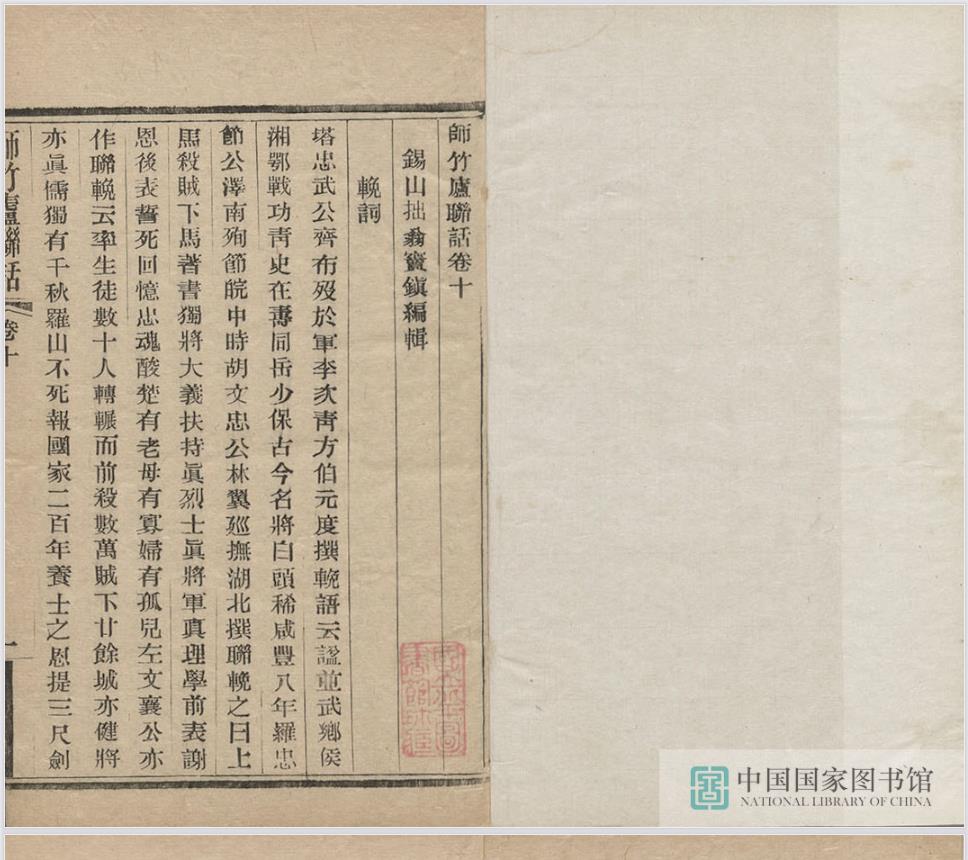 師竹廬聯話卷十
錫山拙叟竇鎮編輯
輓詞
塔忠武公齊布歿於軍李次青方伯元度撰輓語云諡並武鄉侯
湘鄂戰功靑史在壽同岳少保古今名將白頭稀咸豐八年羅忠
節公澤南殉節皖中時胡文忠公林翼廵撫湖北撰聯輓之曰上
馬殺賊下馬著書獨將大義扶持眞烈士眞將軍真理學前表謝
恩後表誓死回憶忠魂酸楚有老母有寡婦有孤兒左文襄公亦
作聯輓云率生徒數十人轉輾而前殺數萬賊下廿餘城亦健將
亦眞儒獨有千秋羅山不死報國家二百年養士之恩提三尺劍
師竹廬聯話
卷十
一
中国国家图书馆
NATIONAL LIBRARY OF CHINA